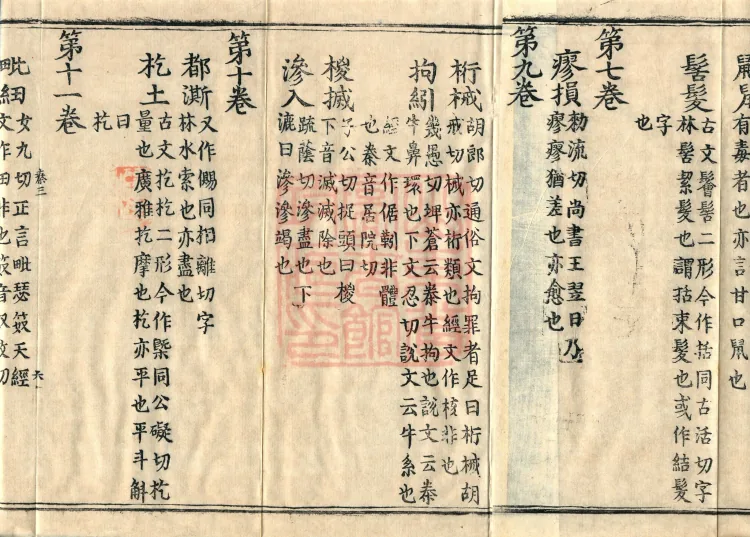 有毒者也亦言甘口鼠也
髺髮 古文鬠髺二形今作括同古活切字
林髺絜髮也謂括束髮也或作結髮
字
也
第七卷
瘳損 勑流切尚書王翌日乃
瘳瘳猶差也亦愈也
第九卷
桁械 胡郎切通俗文拘罪者足曰桁械胡
戒切械亦桁類也經文作核非也
拘紖 幾愚切埤蒼云桊牛拘也說文云桊
牛鼻環也下文忍切說文云牛系也
經文作倨靷非體
也桊音居院切
椶搣 子公切捉頭曰椶
下音滅滅除也
滲入 疏蔭切滲盡也下
漉曰滲滲竭也
第十卷
都澌 又作賜同相離切字
林水索也亦盡也
扢土 古文扢扢二形今作槩同公礙切扢
量也廣雅扢摩也扢亦平也平斗斛
曰
扢
第十一卷
卷三 六一
毗紐 女九切正言毗瑟笯天經
文作田非也笯音奴故切